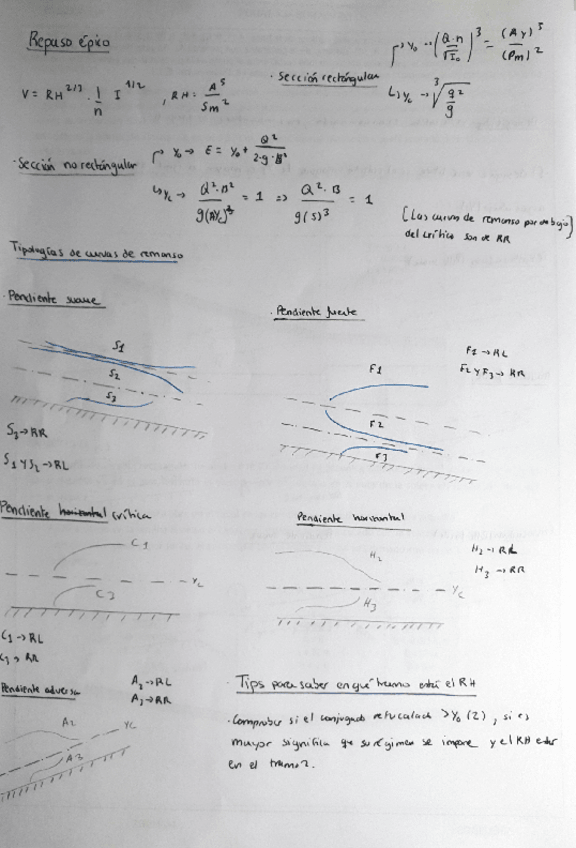 Repaso épico
· Sección rectangular
↱ y₀ → (Q·n / √I₀)³ = (Ay)⁵ / (Pm)²
↳ yc → ∛(q² / g)
V = RH^2/3 · 1/n I^1/2 , RH = A⁵ / Sm²
· Sección no rectangular
↱ y₀ → E = y₀ + Q² / 2·g·
↳ yc → Q²·B² / g(Ayc)³ = 1 => Q²·B / g(S)³ = 1
[Las curvas de remanso por debajo]
del crítico son de RR
Tipologías de curvas de remanso
· Pendiente suave
S1
S2
S3
S3 → RR
S1 y S2 → RL
· Pendiente fuerte
F1 → RL
F2 y F3 → RR
F1
F2
F3
Pendiente horizontal crítica
C1
yc
C3
C1 → RL
C3 → RR
Pendiente horizontal
H2 → RL
H3 → RR
H2
yc
H3
Pendiente adversa
A2 → RL
A3 → RR
A2
yc
A3
· Tips para saber en qué tramo está el RH
· Comprobar si el conjugado > y₀ (2), si es
mayor significa que su régimen se impone y el RH
en el tramo 2.